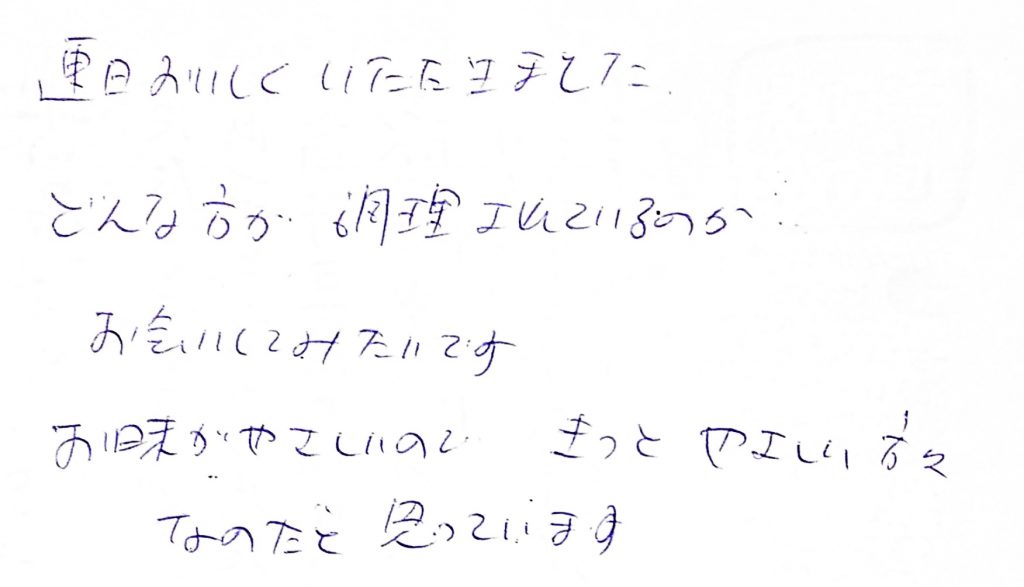 連日おいしくいただきました
どんな方が調理されているのか…
お会いしてみたいです
お味がやさしいので きっと やさしい方々
なのだと思っています